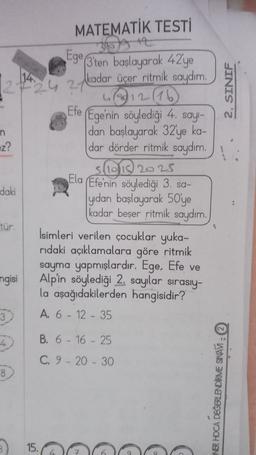 MATEMATİK TESTİ
14.
Ege
3'ten başlayarak 42'ye
kadar üçer ritmik saydım.
4 8 12 16
Efe
Ege'nin söylediği 4. sayı-
dan başlayarak 32'ye ka-
dar dörder ritmik saydım.
5 10 15 20 25
Ela
Efe'nin söylediği 3. sa-
yıdan başlayarak 50'ye
kadar beşer ritmik saydım.
İsimleri verilen çocuklar yuka-
rıdaki açıklamalara göre ritmik
sayma yapmışlardır. Ege, Efe ve
Alp'in söylediği 2. sayılar sırasıy-
la aşağıdakilerden hangisidir?
A. 6 - 12 - 35
B. 6 - 16 - 25
C. 9 - 20 - 30
15.
2. SINIF
HOCA DEĞERLENDİRME SINAVI : 2
z?
daki
tür.
ngisi
3
4
8